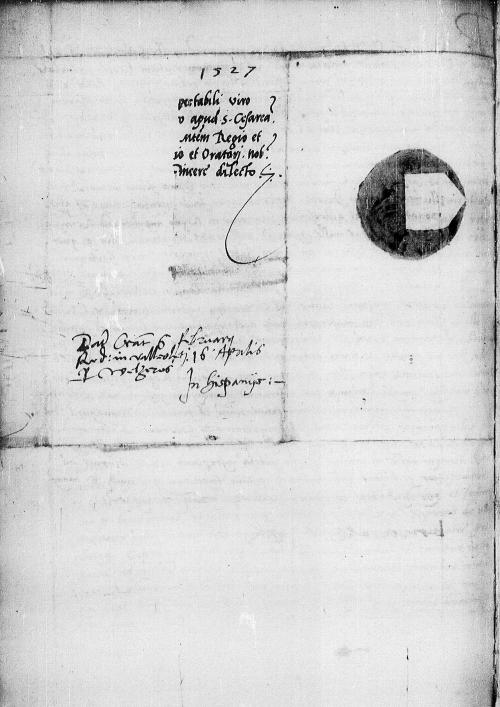 1527
pectabili viro
o apud S. Cesarea.
ntem Regio et
io et Oratori. nob.
incere dilecto
Dat Crac 6 februarij
Red: in valleoleti 16 Aprilis
per Welzeros
In hispanijs:-